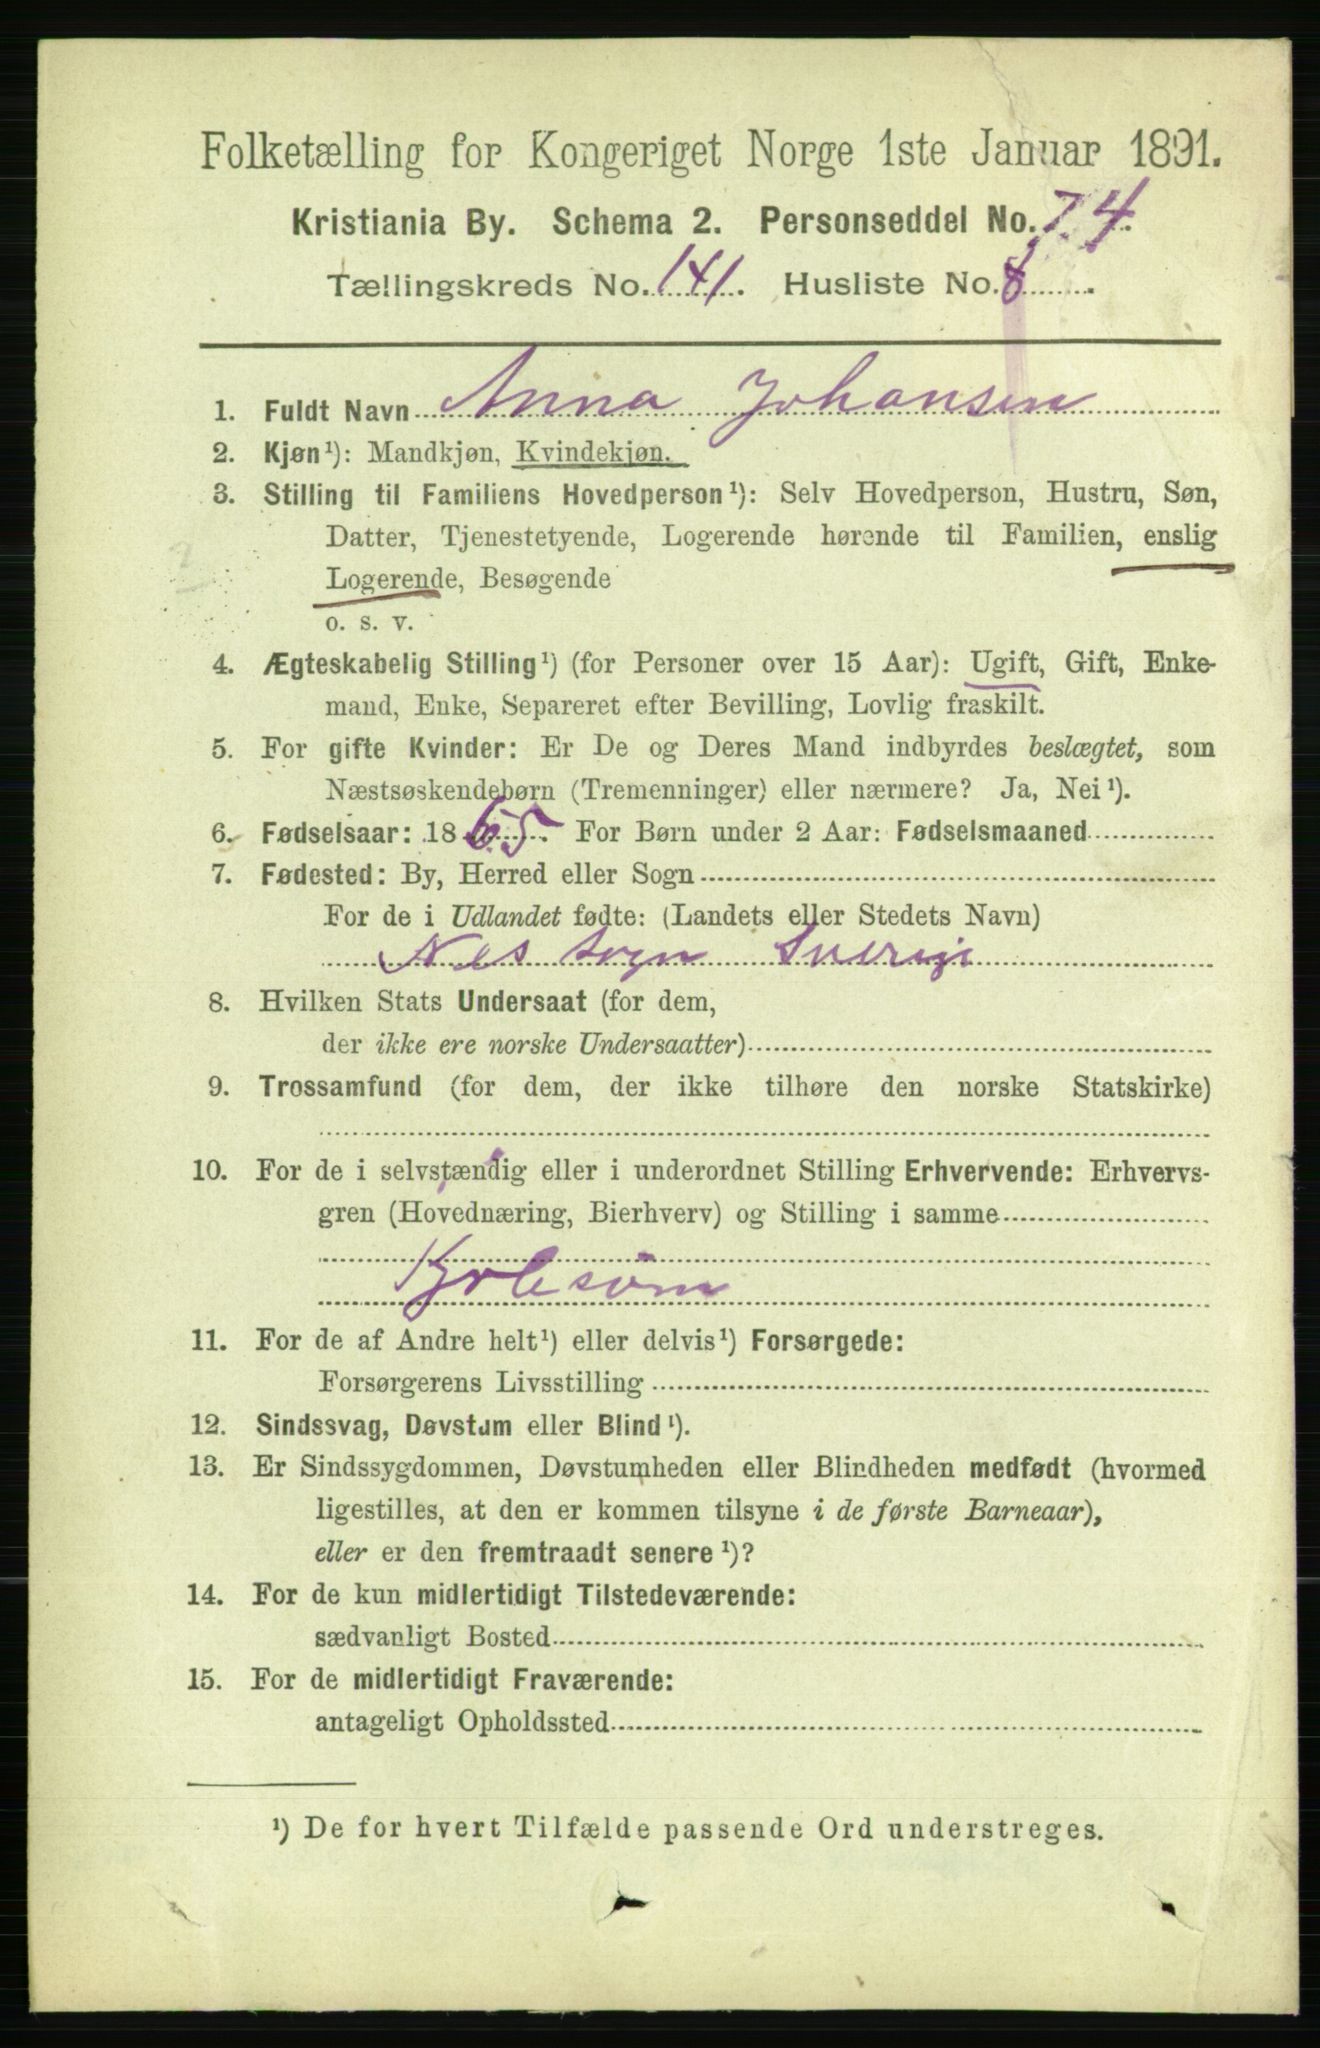 Folketælling for Kongeriget Norge 1ste Januar 1891.
Kristiania By. Schema 2. Personseddel No. 74.
Tællingskreds No. 141. Husliste No. 8.
1. Fuldt Navn Anna Johansen
2. Kjøn¹): Mandkjøn, Kvindekjøn.
3. Stilling til Familiens Hovedperson¹): Selv Hovedperson, Hustru, Søn,
Datter, Tjenestetyende, Logerende hørende til Familien, enslig
Logerende, Besøgende
o. s. v.
4. Ægteskabelig Stilling¹) (for Personer over 15 Aar): Ugift, Gift, Enke-
mand, Enke, Separeret efter Bevilling, Lovlig fraskilt.
5. For gifte Kvinder: Er De og Deres Mand indbyrdes beslægtet, som
Næstsøskendebørn (Tremenninger) eller nærmere? Ja, Nei¹).
6. Fødselsaar: 1865. For Børn under 2 Aar: Fødselsmaaned
7. Fødested: By, Herred eller Sogn
For de i Udlandet fødte: (Landets eller Stedets Navn)
Nes sogn Sverige
8. Hvilken Stats Undersaat (for dem,
der ikke ere norske Undersaatter)
9. Trossamfund (for dem, der ikke tilhøre den norske Statskirke)
10. For de i selvstændig eller i underordnet Stilling Erhvervende: Erhvervs-
gren (Hovednæring, Bierhverv) og Stilling i samme
Kjolesöm
11. For de af Andre helt¹) eller delvis¹) Forsørgede:
Forsørgerens Livsstilling
12. Sindssvag, Døvstum eller Blind¹).
13. Er Sindssygdommen, Døvstumheden eller Blindheden medfødt (hvormed
ligestilles, at den er kommen tilsyne i de første Barneaar),
eller er den fremtraadt senere¹)?
14. For de kun midlertidigt Tilstedeværende:
sædvanligt Bosted
15. For de midlertidigt Fraværende:
antageligt Opholdssted
¹) De for hvert Tilfælde passende Ord understreges.